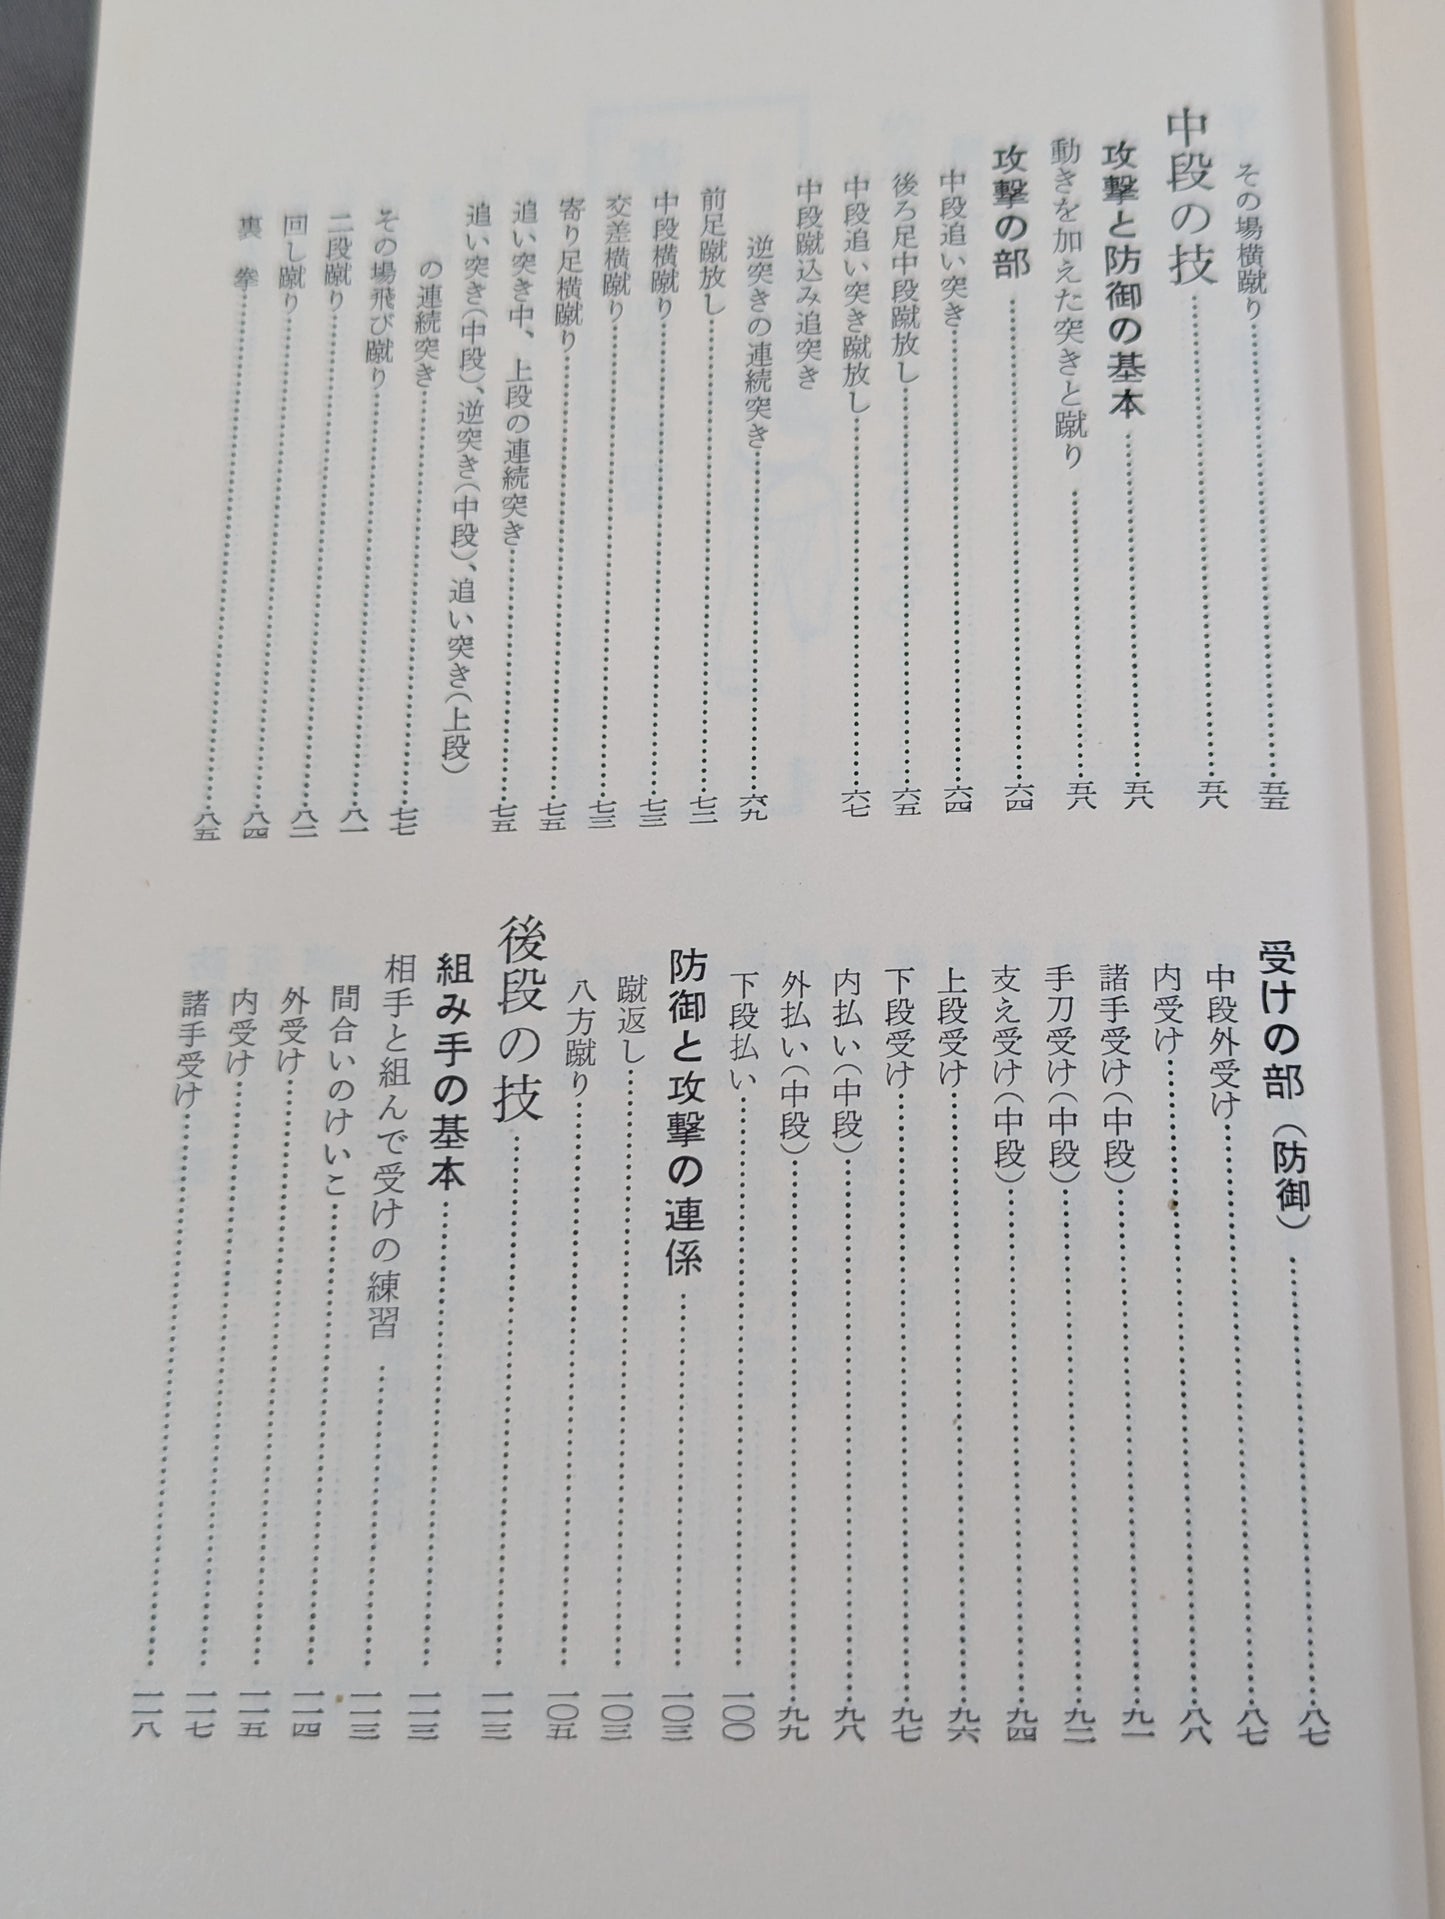 その場横蹴り……五五
中段の技……五八
攻撃と防御の基本……五八
動きを加えた突きと蹴り……五八
攻撃の部……六四
中段追い突き……六四
後ろ足中段蹴放し……六五
中段追い突き蹴放し……六七
中段蹴込み追突き
逆突きの連続突き……六九
前足蹴放し……七二
中段横蹴り……七三
交差横蹴り……七三
寄り足横蹴り……七五
追い突き中、上段の連続突き……七五
追い突き(中段)、逆突き(中段)、追い突き(上段)
の連続突き……七七
その場飛び蹴り……八一
二段蹴り……八二
回し蹴り……八四
裏　拳……八五
受けの部(防御)……八七
中段外受け……八七
内受け……八八
諸手受け(中段)……九一
手刀受け(中段)……九二
支え受け(中段)……九四
上段受け……九六
下段受け……九七
内払い(中段)……九八
外払い(中段)……九九
下段払い……一〇〇
防御と攻撃の連係……一〇三
蹴返し……一〇三
八方蹴り……一〇五
後段の技……一一三
組み手の基本……一一三
相手と組んで受けの練習……一一三
間合いのけいこ……一一四
外受け……一一五
内受け……一一七
諸手受け……一一八